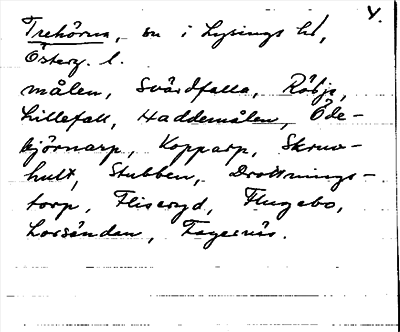 4.
Trehörna, sn i Lysings hd,
Österg. l.
målen, Svärdfalla, Röbjö,
Lillefall, Haddemålen, Öde-
björnarp, Kopparp, Skruv-
hult, Stubben, Drottnings-
torp, Fliseryd, Flugebo,
Lorsändan, Fagernäs.